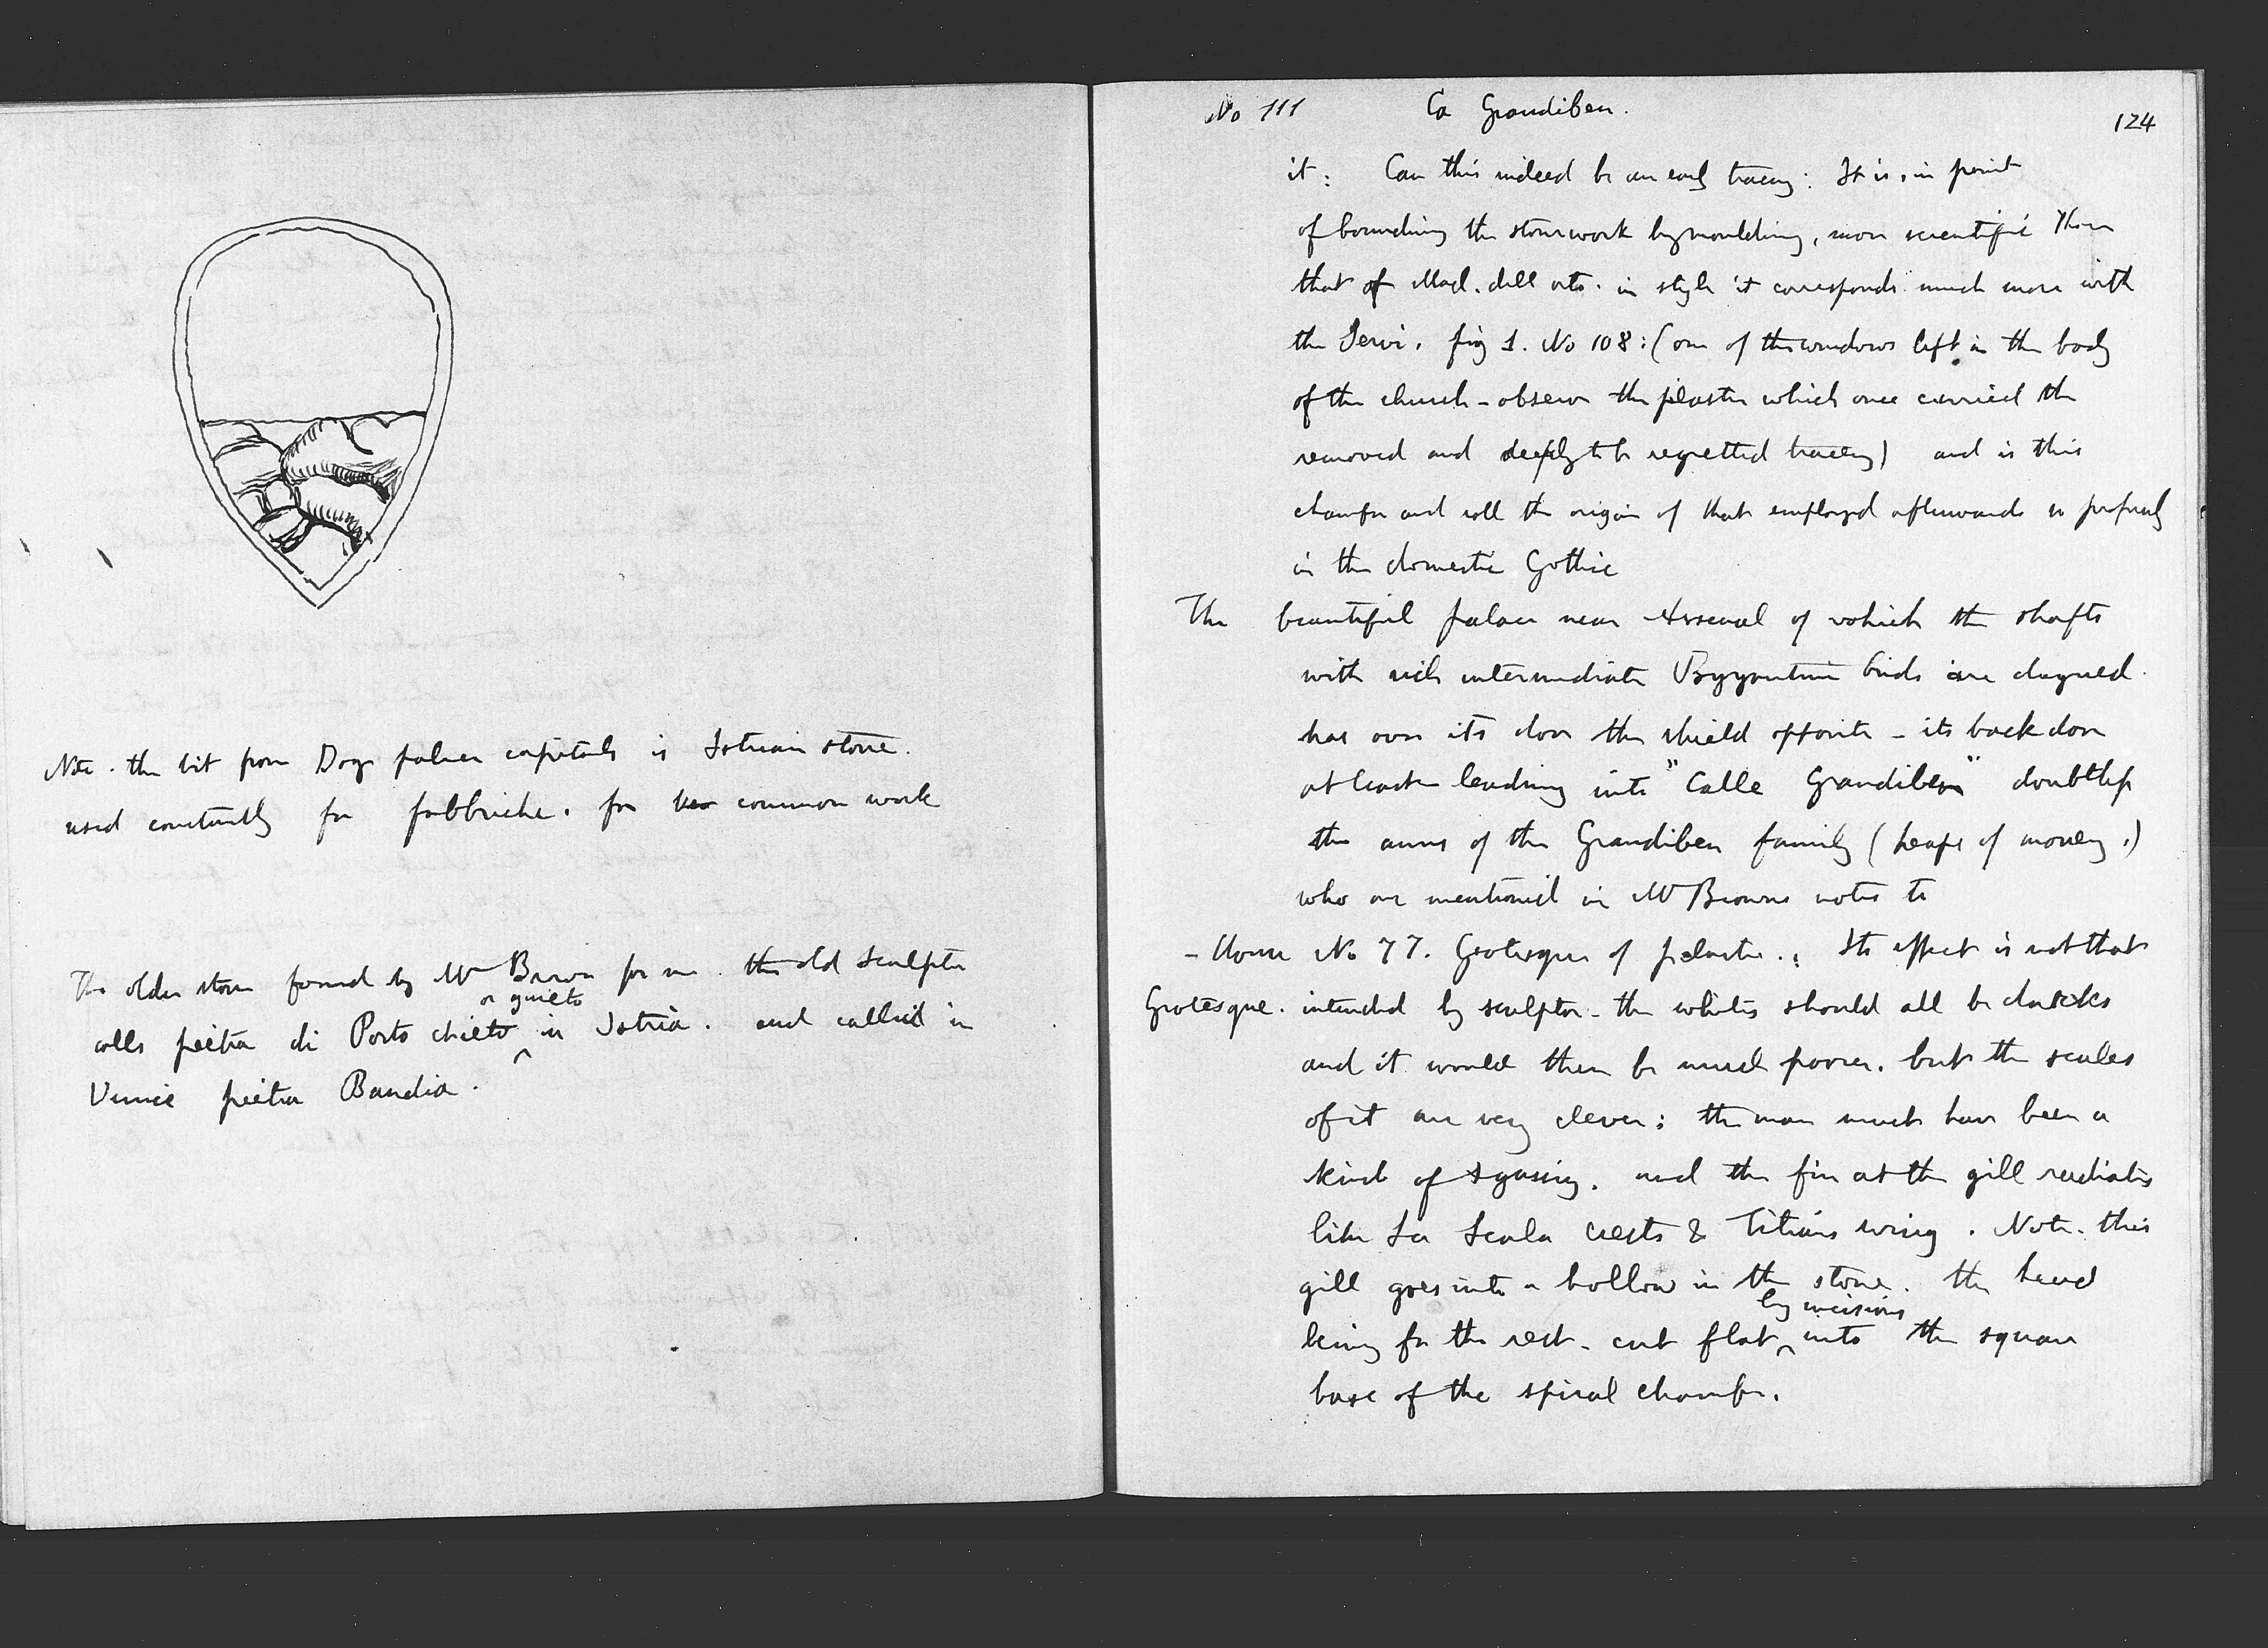 Note. the bit from Doge palace capitals is Istrian stone.
used constantly for fabbriche. for common work
The older stone found by Mr Brown for me. the old sculptor
or quieto
calls pietra di Porto chieto in Istria. and called in
Venice pietra Bandia.
No 111 Ca Grandiben. 124
it: Can this indeed be an early tracery: It is, in point
of bounding the stonework by moulding, more scientific than
that of Mad. dell orto. in style it corresponds much more with
the Servi. fig 1. No 108: (one of the windows left in the body
of the church - observe the plaster which once carried the
removed and deeply to be regretted tracery) and is this
chamfer and roll the origin of that employed afterwards so profusely
in the domestic Gothic
The beautiful palace near Arsenal of which the shafts
with rich intermediate Byzantine birds are dagued.
has over its door the shield opposite - its back door
at least leading into "Calle Grandiben" doubtless
the arms of the Grandiben family (heaps of money.)
who are mentioned in Mr Browns notes to
- House No 77. Grotesque of pilaster.: Its effect is not that
Grotesque. intended by sculptor - the whites should all be darks
and it would then be much poorer. but the scales
of it are very clever: the man must have been a
kind of and the fin at the gill radiates
like La Scala crests & Titians wing. Note. this
gill goes into a hollow in the stone. the head
by incisions
being for the rest - cut flat into the square
base of the spiral chamfer.